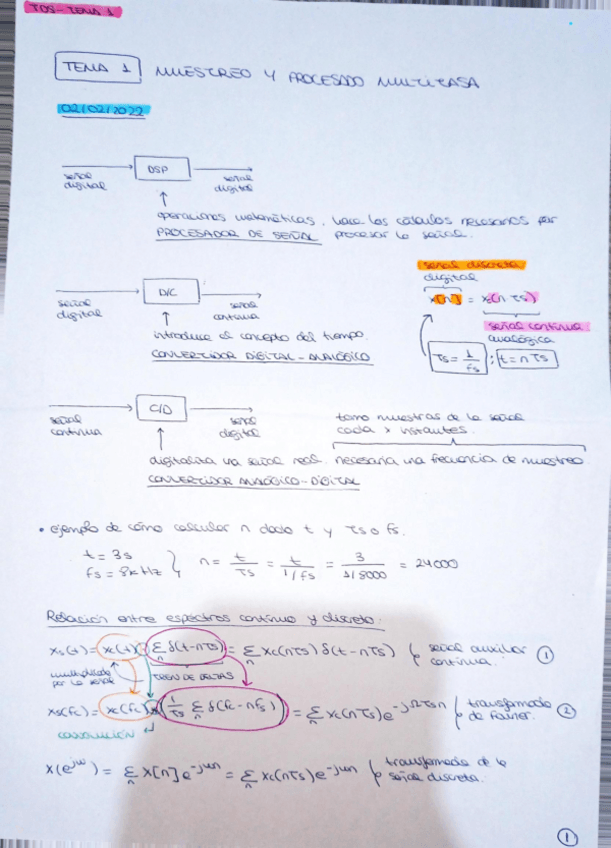 TDS-TEMA 1
TEMA 1 MUESTREO Y PROCESADO MULTITASA
02/02/2022
señal digital DSP señal digital
operaciones matemáticas, hace los cálculos necesarios par
PROCESADOR DE SEÑAL procesar la señal.
señal discreta
digital
x[n] = xc(nTs)
señal continua
analógica
Ts = 1/fs ; t = nTs
señal digital D/C señal continua
introduce el concepto del tiempo.
CONVERTIDOR DIGITAL-ANALÓGICO
señal continua C/D señal digital
tomo muestras de la señal
cada x instantes.
digitaliza una señal real. necesaria una frecuencia de muestreo
CONVERTIDOR ANALÓGICO-DIGITAL
• ejemplo de cómo calcular n dado t y Ts o fs.
t = 3s
fs = 8kHz } n = t/Ts = t/1/fs = 3/1/8000 = 24000
Relación entre espectros continuo y discreto:
xs(t) = xc(t) · Σn δ(t-nTs) = Σn xc(nTs) δ(t-nTs) } señal auxiliar continua. ①
multiplicada por la señal
TREN DE DELTAS
xs(fc) = xc(fc) * (1/Ts Σn δ(fc-nfs)) = Σn xc(nTs)e^-jΩTsn } transformada de Fourier. ②
CONVOLUCIÓN
X(e^jω) = Σn x[n]e^-jωn = Σn xc(nTs)e^-jωn } transformada de la señal discreta.
①